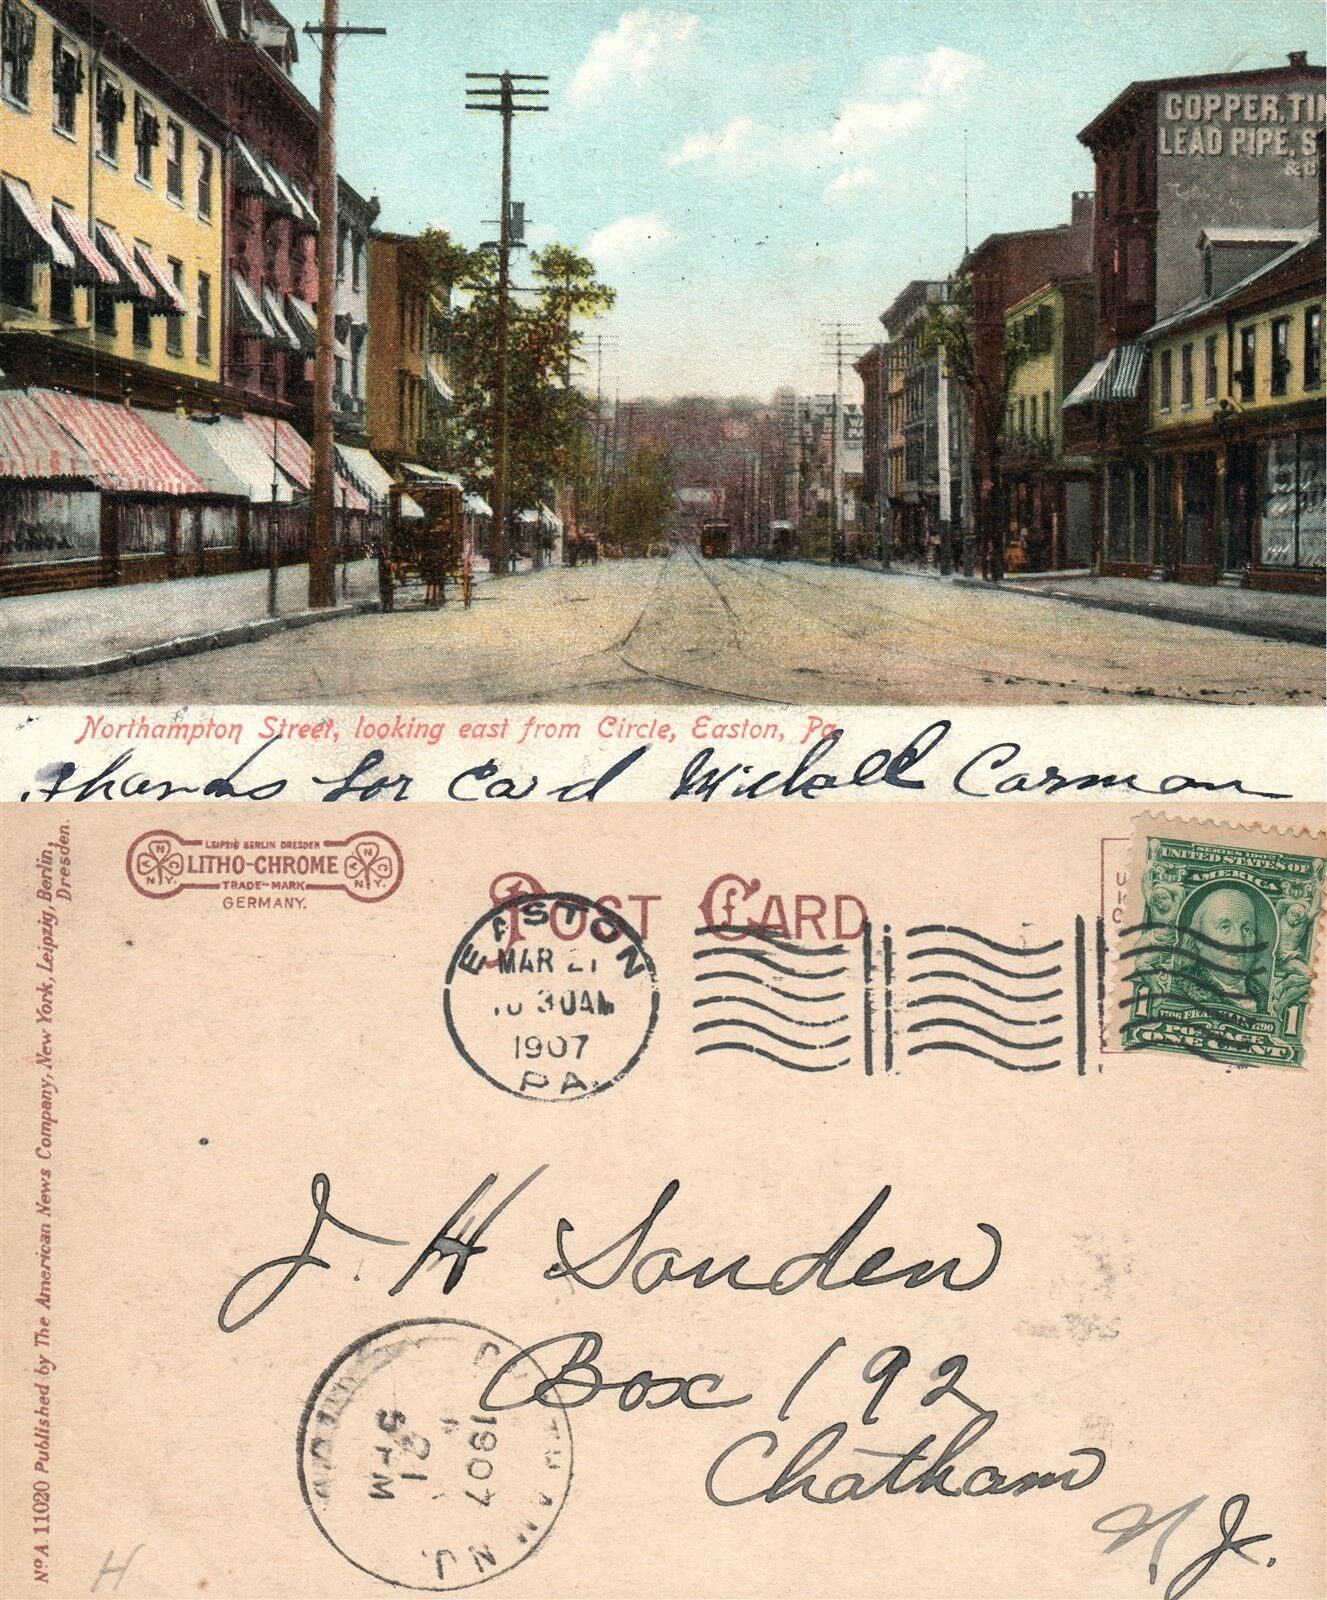 COPPER, TIN
LEAD PIPE, S
& C
Northampton Street, looking east from Circle, Easton, Pa.
Thanks for Card Michell Carman
LEIPZIG BERLIN DRESDEN
LITHO-CHROME
TRADE-MARK
GERMANY.
POST CARD
EASTON
MAR 21
10 30 AM
1907
PA.
SERIES 1902
UNITED STATES OF
AMERICA
1706 FRANKLIN 1790
1 1
POSTAGE
ONE CENT
J. H Sanden
Box 192
Chatham
N. J.
N.J.
1907
21
5 PM
No A 11020 Published by The American News Company, New York, Leipzig, Berlin,
Dresden.
H